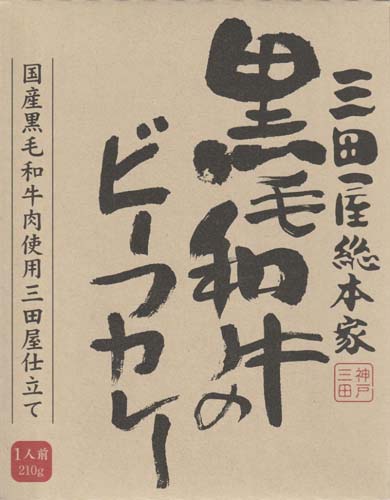 三田屋総本家
神戸
三田
黒毛和牛の
ビーフカレー
国産黒毛和牛肉使用三田屋仕立て
1人前
210g